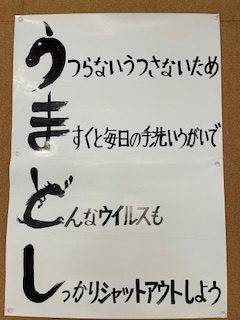 うつらないうつさないため
ますくと毎日の手洗いうがいで
どんなウイルスも
しっかりシャットアウトしよう